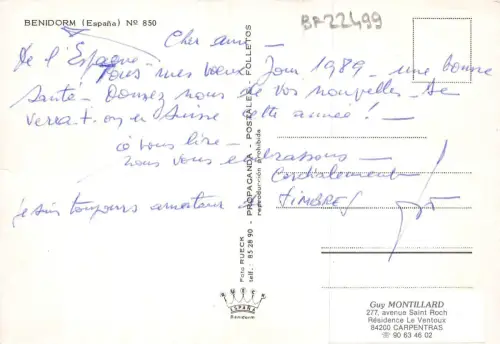 BENIDORM (España) Nº 850
BF22499
Cher ami —
De l'Espagne —
Tous mes voeux pour 1989 — une bonne
Santé — Donnez nous de vos nouvelles — Se
verra-t-on en Suisse cette année! —
à vous lire —
nous vous embrassons —
Cordialement
je suis toujours amateur de TIMBRES
Foto RUECK - PROPAGANDA - POSTALES - FOLLETOS
telf. 85 28 90 - reproducción prohibida
ESPAÑA
Benidorm
Guy MONTILLARD
277, avenue Saint Roch
Résidence Le Ventoux
84200 CARPENTRAS
☎ 90 63 46 02